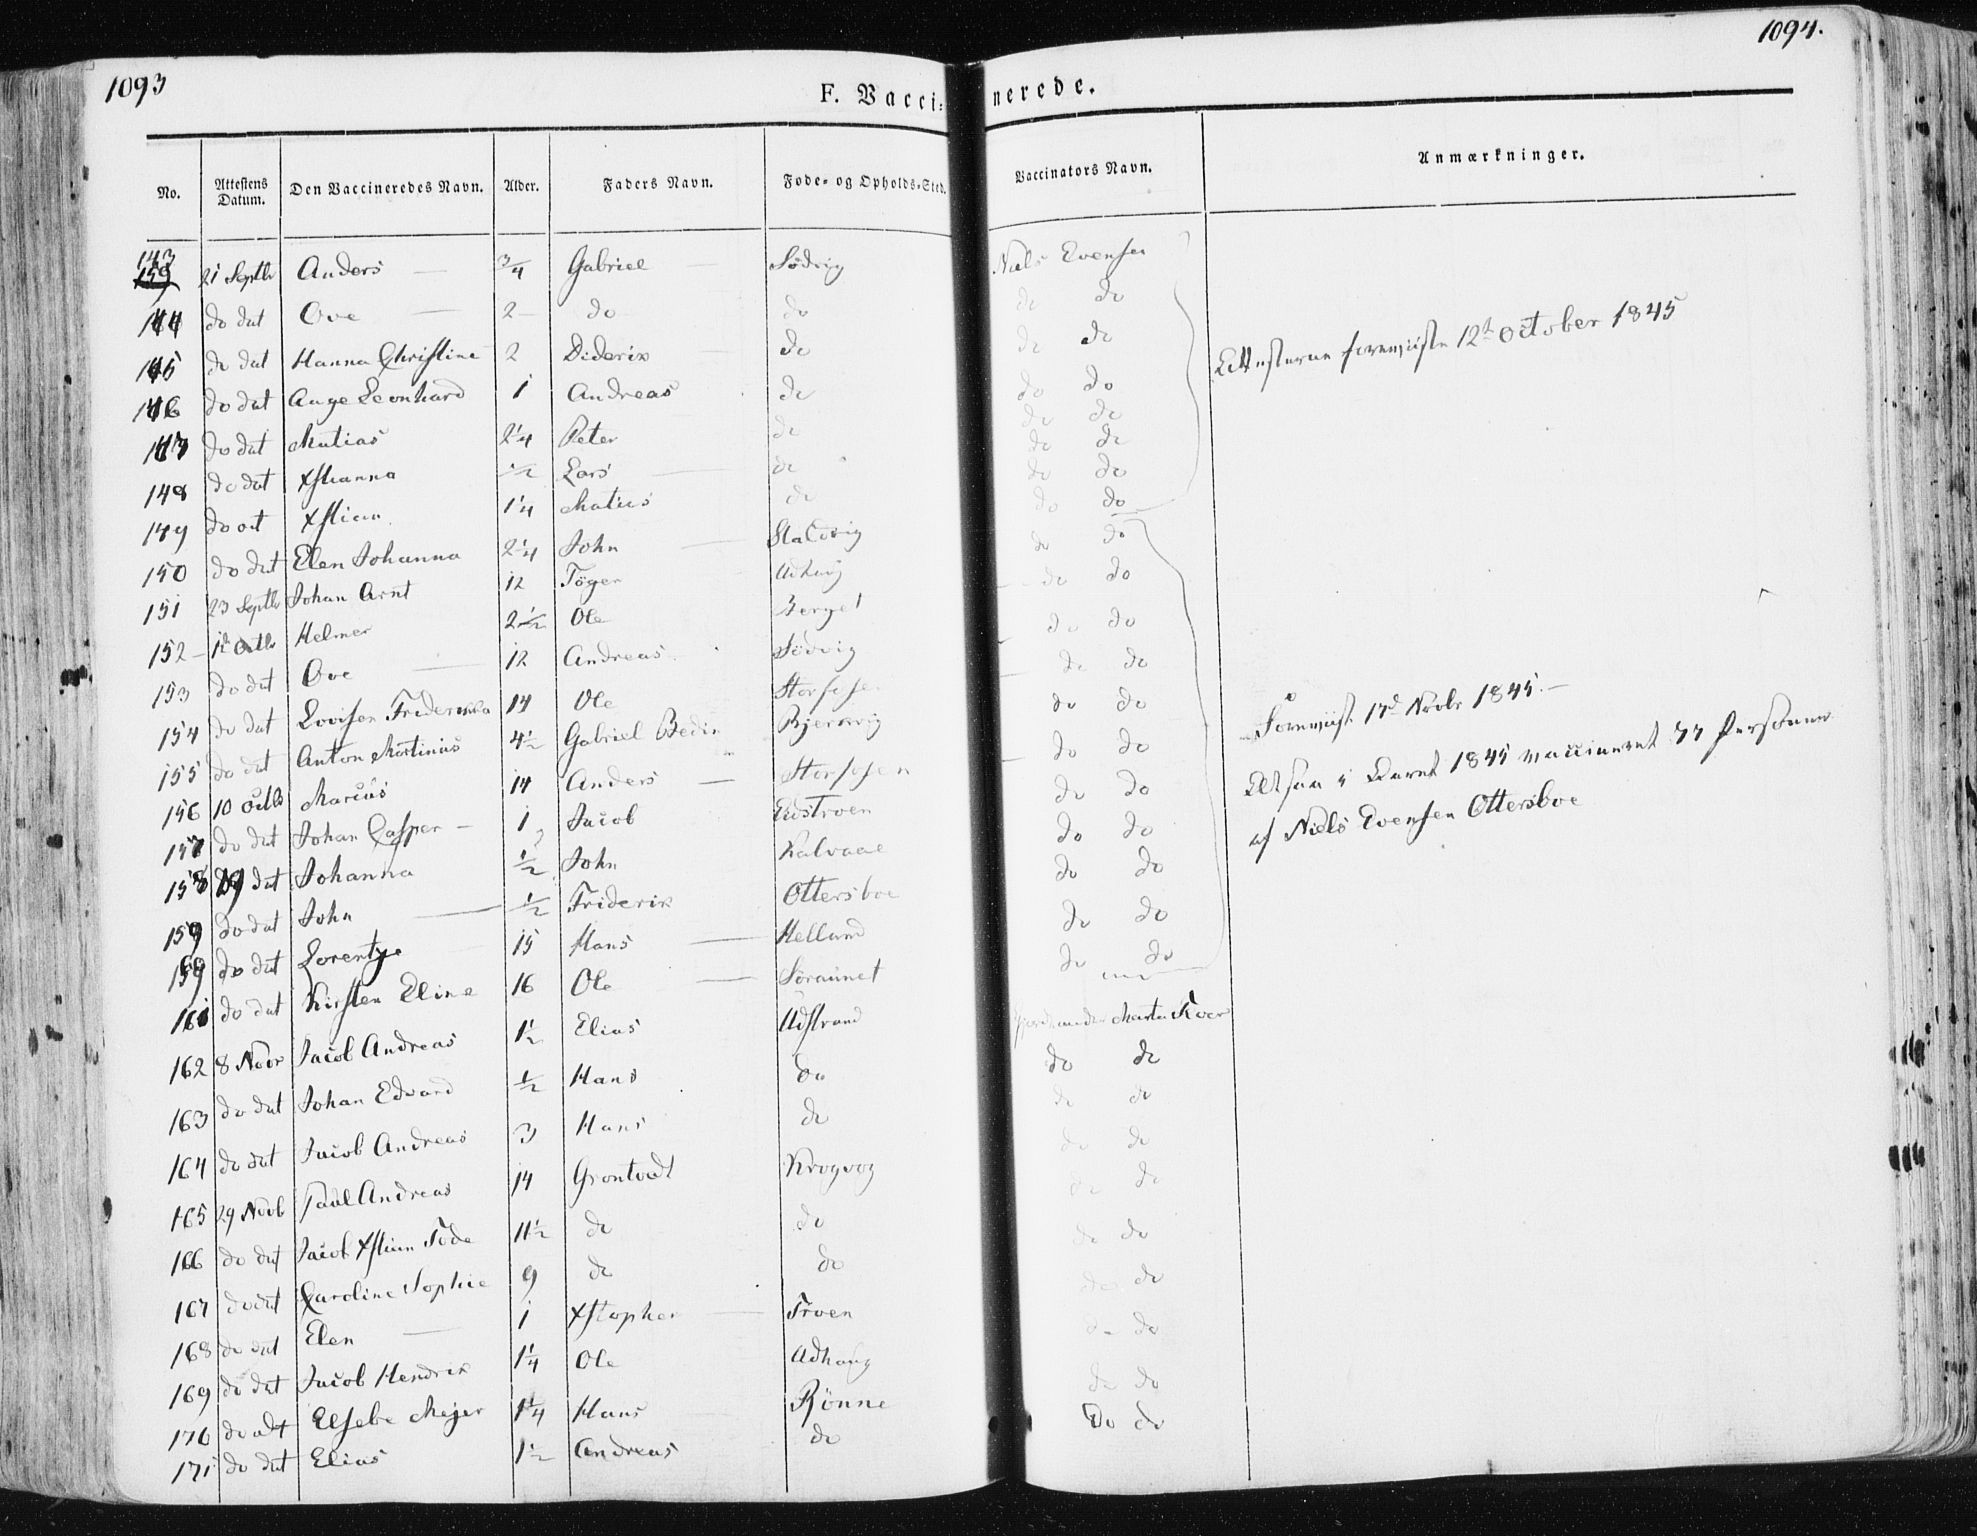 1093
1094.
F. Vacci= nerede.
No. Attestens Datum. Den Vaccineredes Navn. Alder. Faders Navn. Føde= og Opholds=Sted. Vaccinators Navn. Anmærkninger.
143 159 21 Septbr Anders 3/4 Gabriel Södvig Niels Evensen
144 do dat Ove 2 do do do do
145 do dat Hanna Christine 2 Diderix do do do
146 do dat Aage Leonhard 1 Andreas do do do
147 do dat Matias 2 1/4 Peter do do do
148 do dat Xstianna 1/2 Lars do do do
149 do dat Xstian 1 1/4 Matias do do do
150 do dat Elen Johanna 2 1/4 John do do
151 23 Septbr Johan Arnt 12 Töger Udhaug do do
152 1ste Octbr Helmer 2 1/2 Ole Berget do do
153 do dat Ove 12 Andreas Södvig do do
154 do dat Lovisen Friderikka 14 Ole Storfosen do do
155 do dat Anton Martinus 4 1/2 Gabriel Bjernvig do do
156 10 Octbr Marcus 14 Anders Storfosen do do
157 do dat Johan Casper 1 Jacob Eidstroen do do
158 dat Johanna 1/2 John Kalvaae do do
159 do dat John 1/2 Friderix Ottersboe do do
do dat Lorentze 15 Hans Helland do do
161 do dat Kirsten Eline 16 Ole Söraunet do do
162 8 Novr Jacob Andreas 1 1/2 Elias Udstrand Marta
163 do dat Johan Edvard 1/2 Hans do do do
164 do dat Jacob Andreas 3 Hans do do do
165 29 Novb Paul Andreas 14 Grontvedt Krogvog do do
166 do dat Jacob Xstian Tode 11 1/2 do do do do
167 do dat Caroline Sophie 9 do do do do
168 do dat Elen 1 Xstopher Troen do do
169 do dat Jacob Hendrix 1 1/4 Ole Udhaug do do
170 do dat Elsebe Mejer 1 1/4 Hans Rönne do do
171 do dat Elias 1 1/2 Andreas do do do
Attesterne foreviiste 12te October 1845
Foreviist 17de Novbr 1845.
Altsaa i Aaret 1845 vaccineret 77 Personer
af Niels Evensen Ottersboe